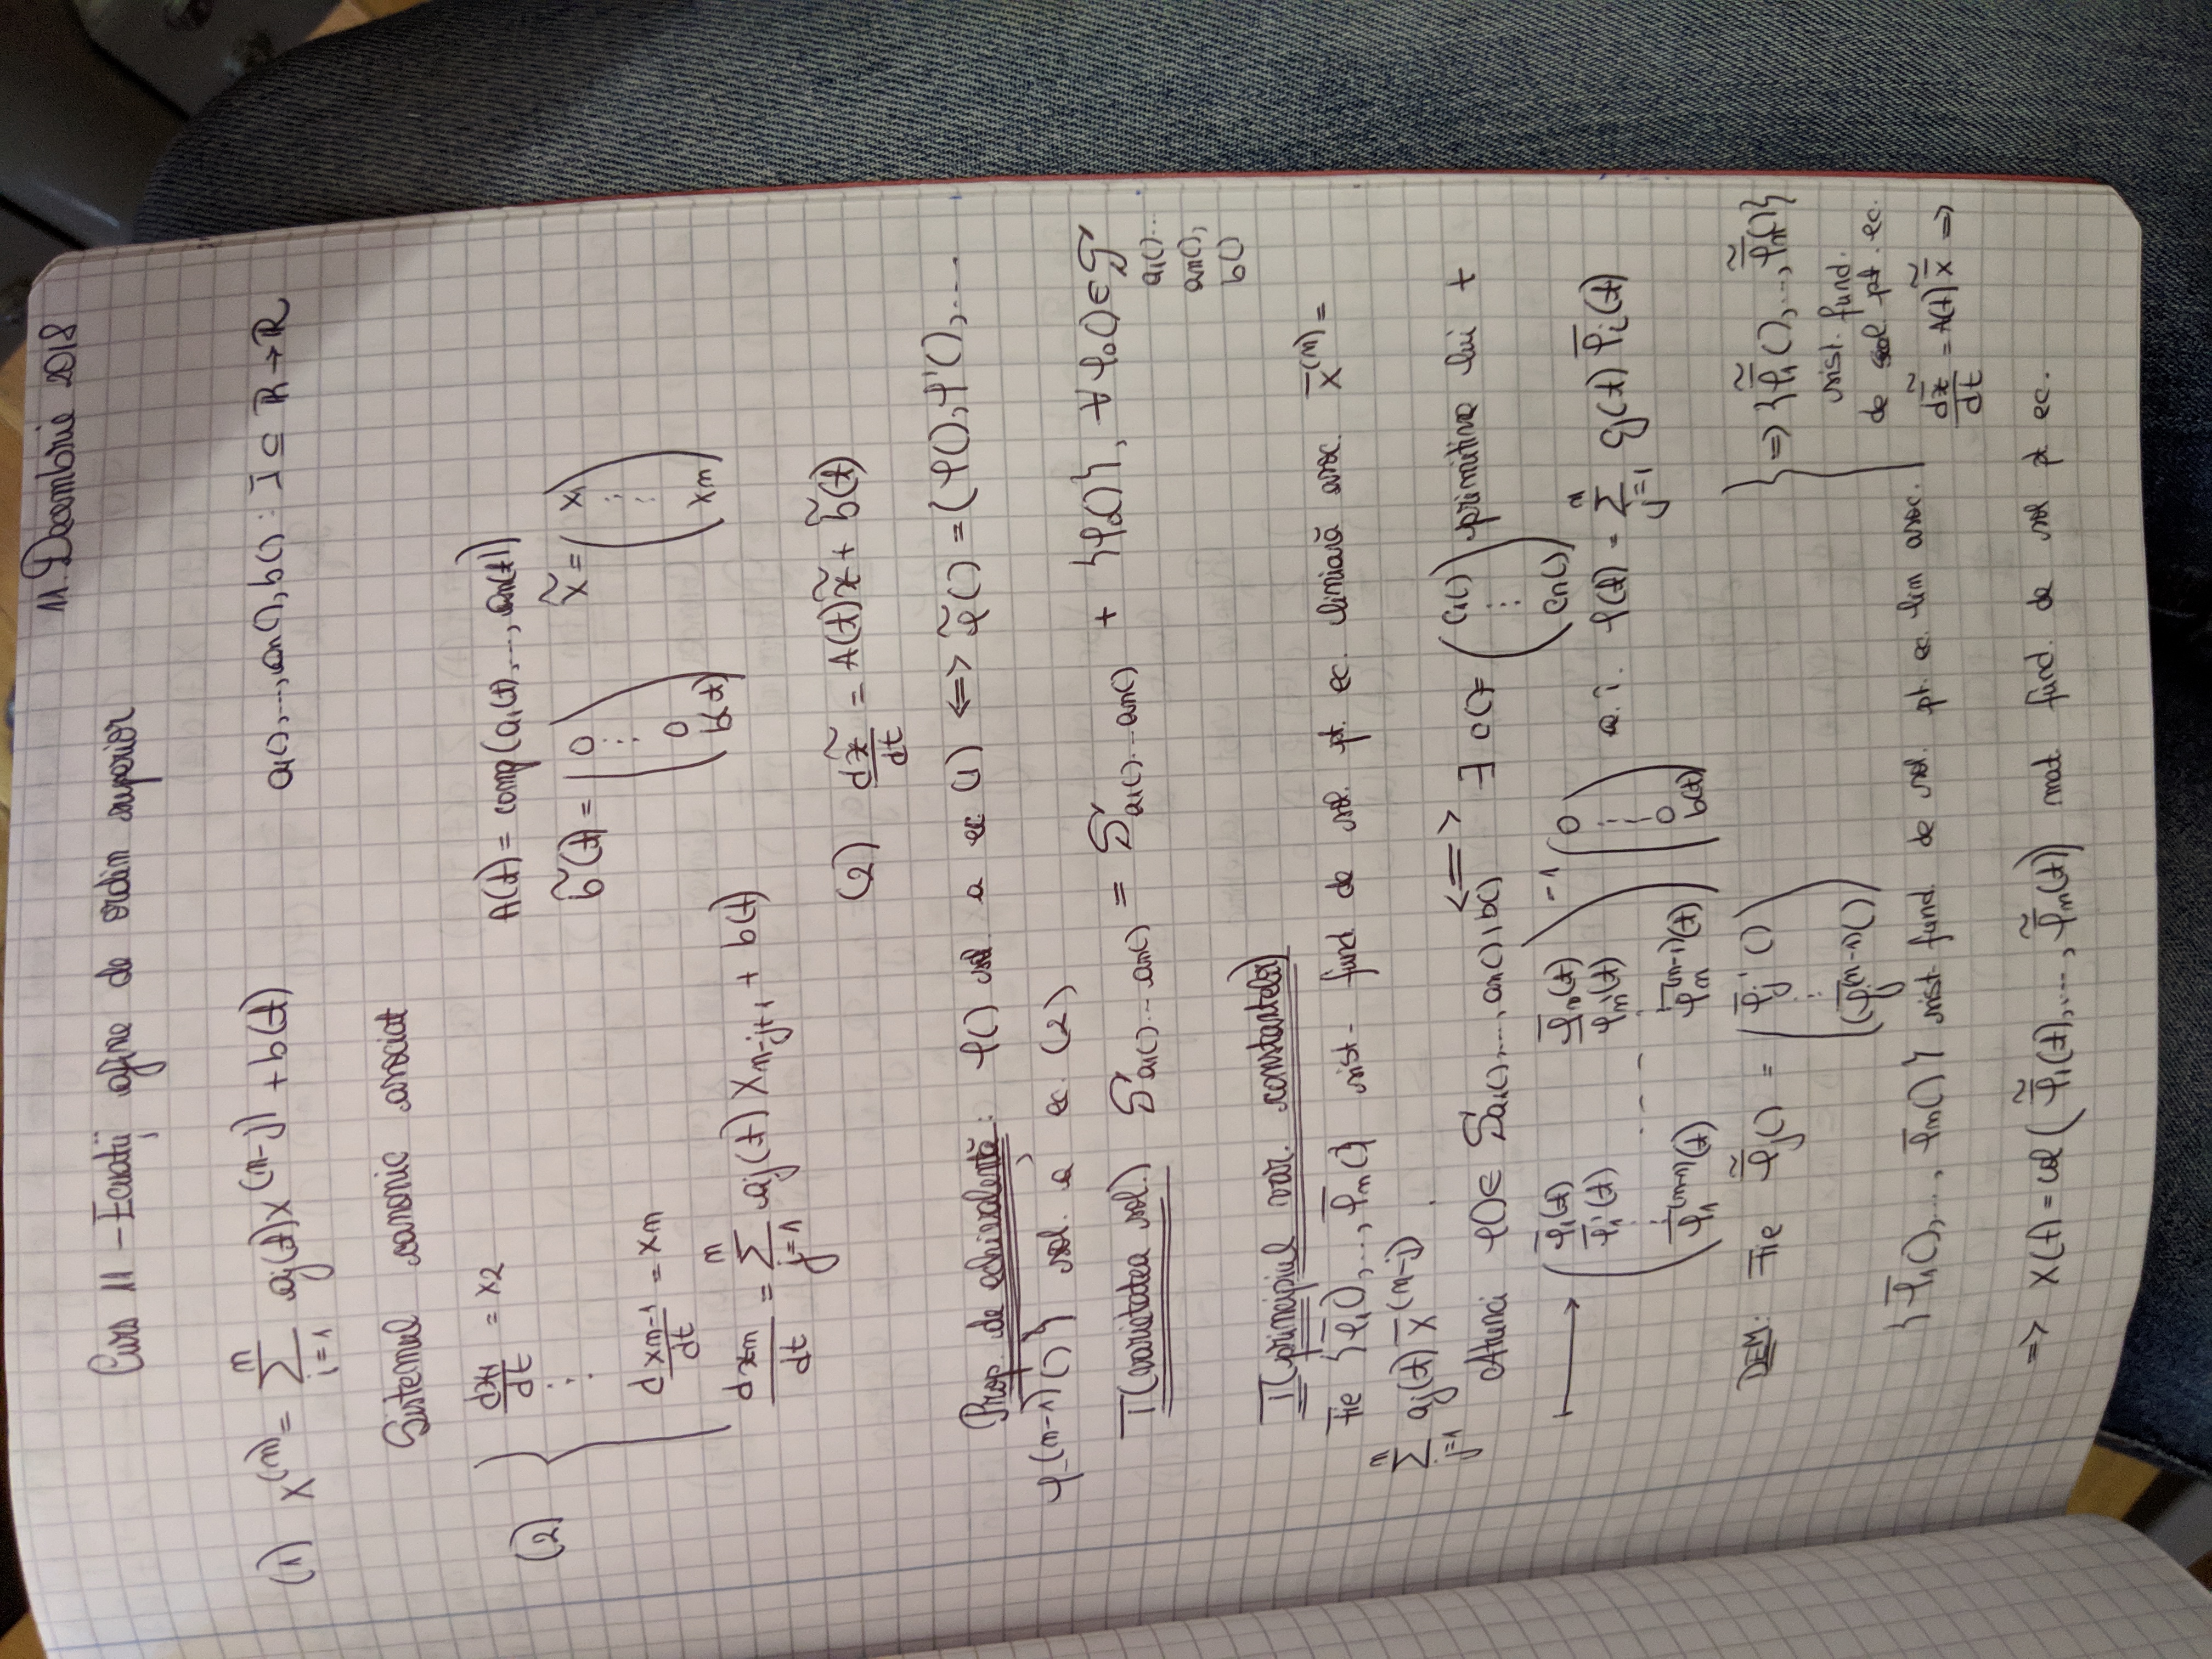 11. Decembrie 2018
Curs 11 – Ecuații afine de ordin superior
(1) x^(n) = ∑_{i=1}^{n} aj(t)x^(n-j) + b(t) a1(),..., an(), b() : I ⊆ ℝ → ℝ
Sistemul canonic asociat
(2) { dx1/dt = x2
⋮
dxn-1/dt = xn
dxn/dt = ∑_{j=1}^{n} aj(t) x_{n-j+1} + b(t)
A(t) = comp(a1(t),..., an(t))
b̃(t) = (0 ⋮ 0 b(t)) x̃ = (x1 ⋮ xn)
(2) dx̃/dt = A(t)x̃ + b̃(t)
Prop. de echivalență: φ() sol. a ec (1) <=> φ̃() = (φ(), φ'(),...
φ^(n-1)()} sol. a ec. (2)
T(varietatea sol.) S_{a1()...an()} = S_{a1()...an()} + {φ0()}, ∀ φ0() ∈ S
a1()...
an(),
b()
T(principiul var. constantelor)
Fie {φ̄1(),..., φ̄n()} sist. fund. de sol. pt. ec. liniară asoc. x̄^(n) =
∑_{j=1}^{n} aj(t) x̄^(n-j).
Atunci φ() ∈ S_{a1(),...,an(),b()} <=> ∃ c() = (c1() ⋮ cn()) primitive lui t
⟼ (φ̄1(t) φ̄n(t)
φ̄1'(t) φ̄n'(t)
⋮ --- ⋮
φ̄1^(n-1)(t) φ̄n^(n-1)(t))^-1 (0 ⋮ 0 b(t)) a.î. φ(t) = ∑_{j=1}^{n} cj(t) φ̄i(t)
DEM: Fie φ̄̃j() = (φ̄j'() ⋮ φ̄j^(n-1)())
{φ̄1(),..., φ̄n()} sist. fund. de sol. pt. ec. lin asoc.
} => {φ̄̃1(),..., φ̄̃n()}
sist. fund.
de sol. pt. ec.
dx̄̃/dt = A(t) x̄̃ =>
=> X(t) = col(φ̄̃1(t),..., φ̄̃n(t)) mat. fund. de sol pt. ec.